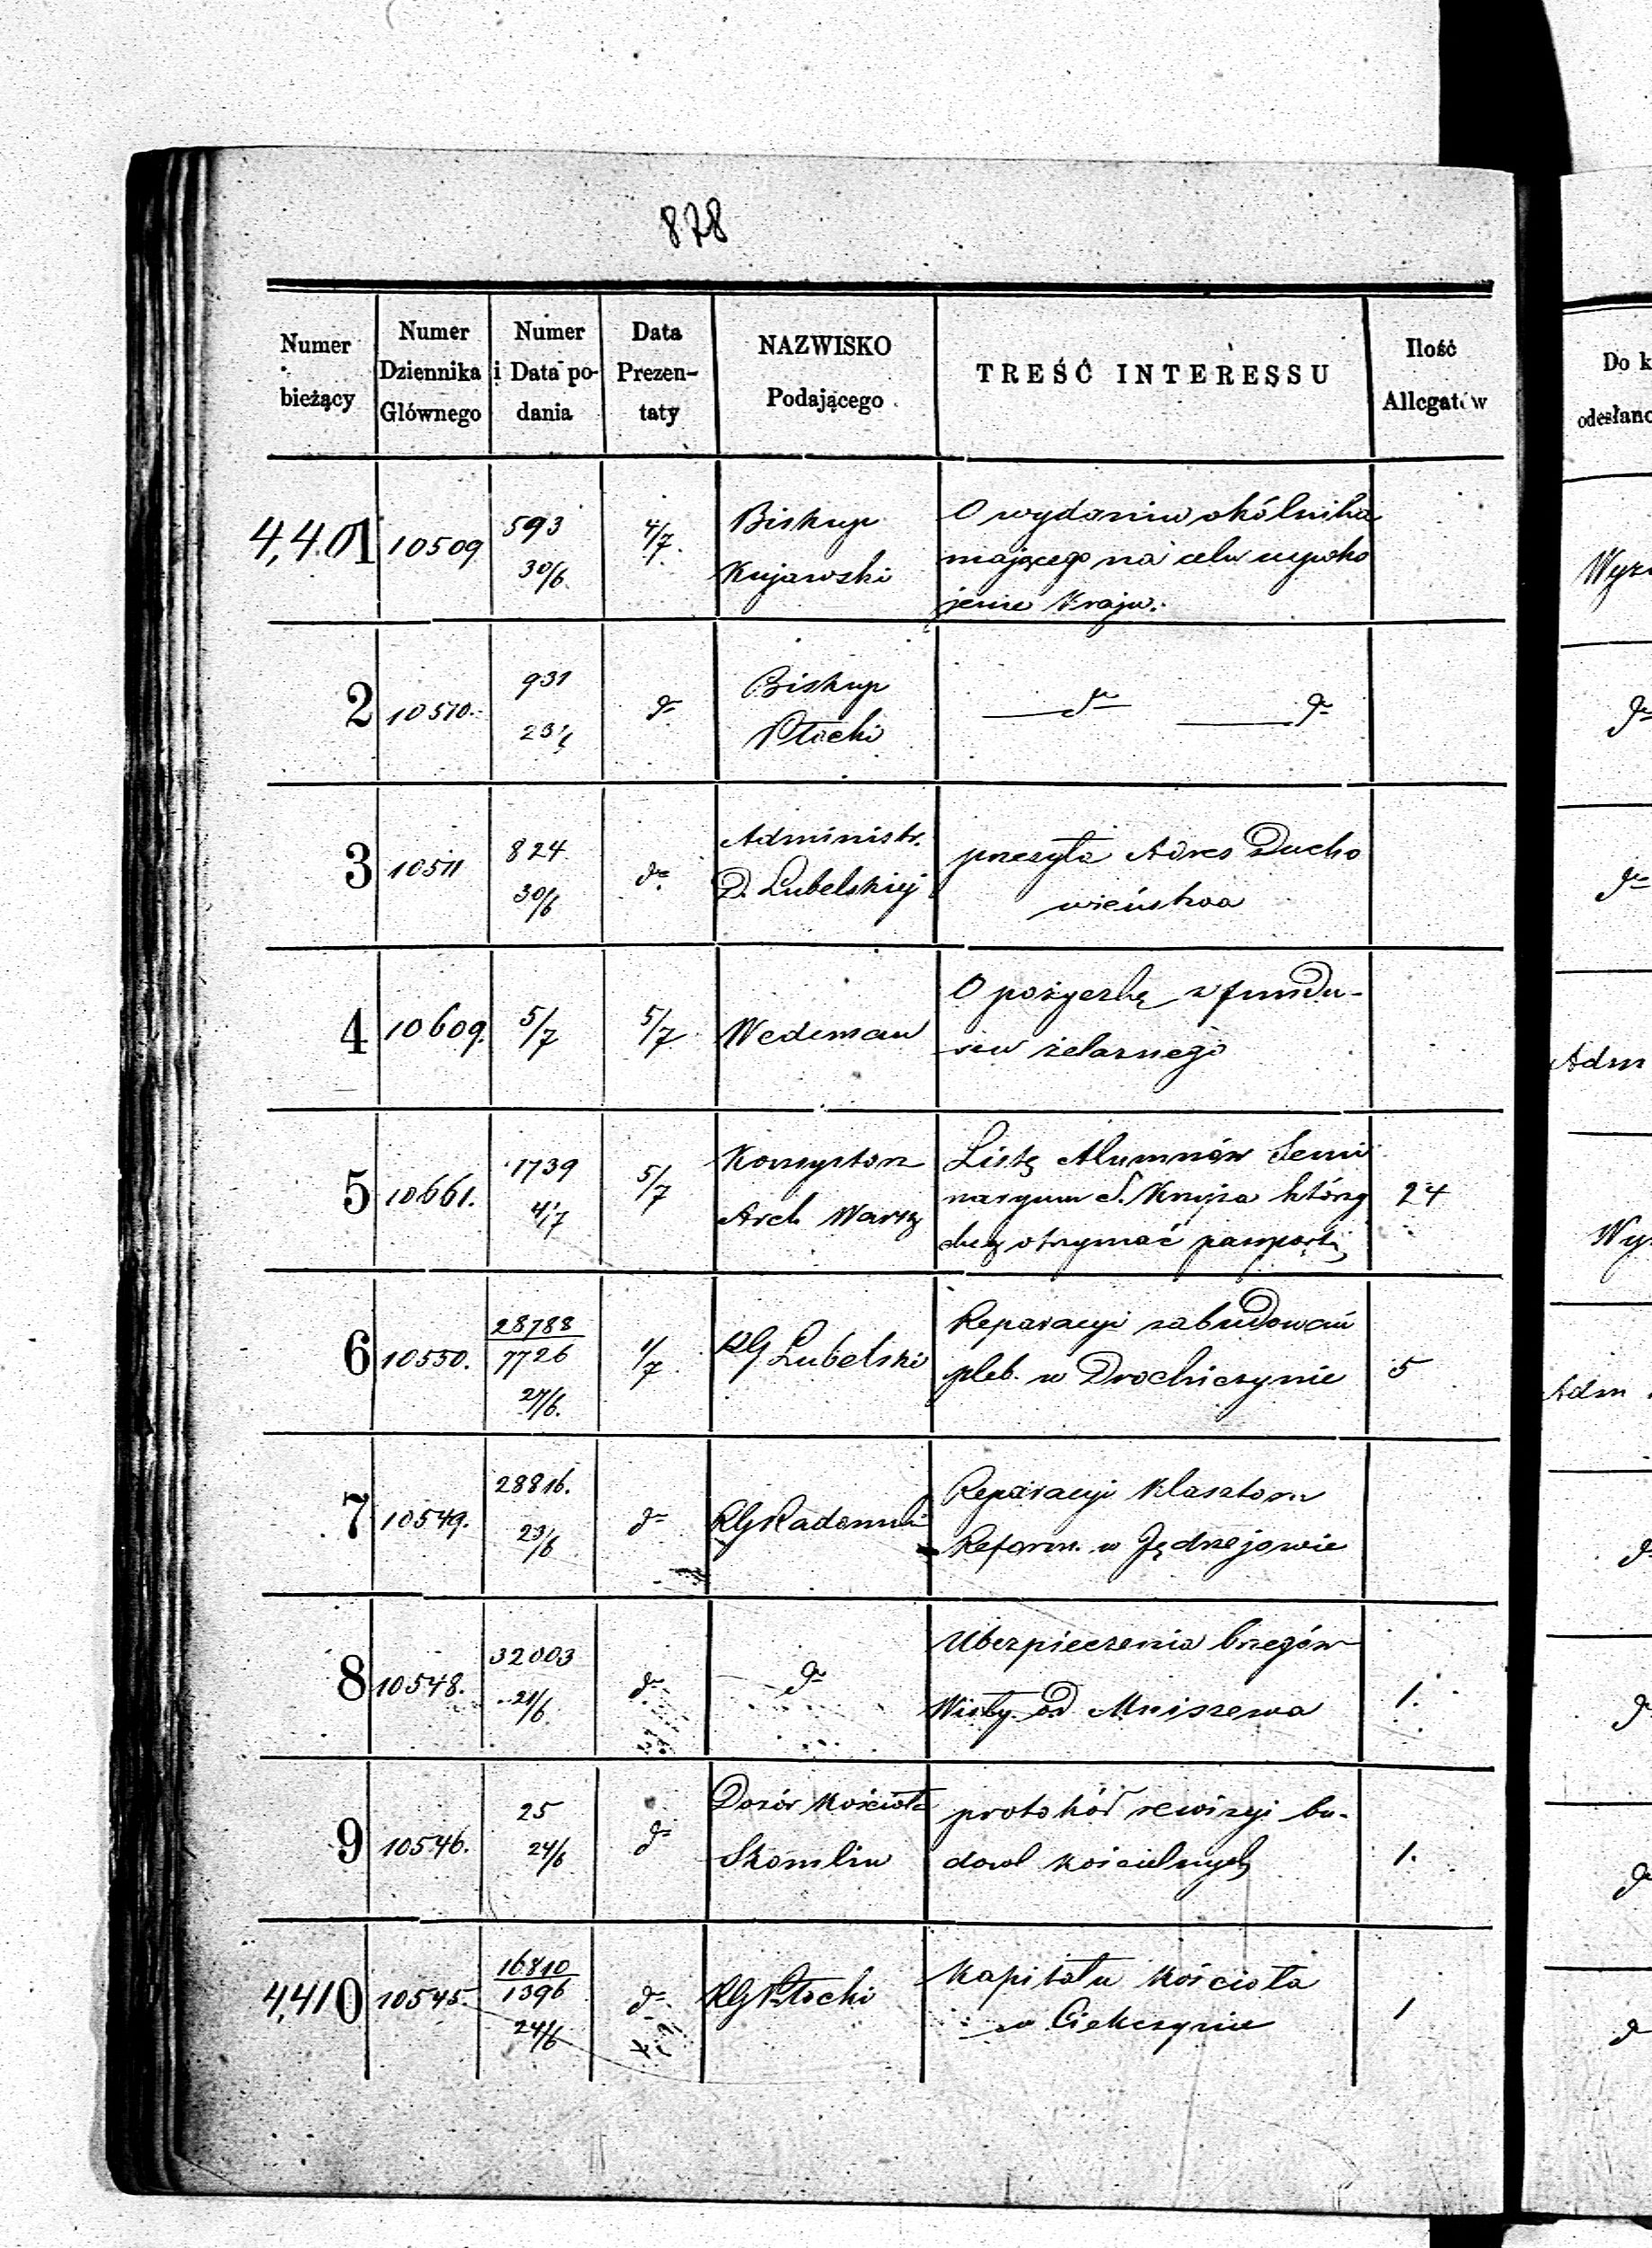 878
Numer bieżący | Numer Dziennika Głównego | Numer i Data podania | Data Prezentaty | NAZWISKO Podającego | TREŚĆ INTERESSU | Ilość Allegatów | Do k
odesłano
4,401 | 10509 | 593 30/6. | 4/7. | Biskup Kujawski | O wydaniu okólnika mającego na celu uspoko jenie Kraju. | | Wyzn
2 | 10510. | 931 23/6 | do | Biskup Płocki | do do | | do
3 | 10511 | 824 30/6 | do | Administr. D. Lubelskiej | przesyła Adres Ducho wieństwa | | do
4 | 10609. | 5/7 | 5/7 | Wedeman | O pożyczkę z fundu- szu żelaznego | | Adm
5 | 10661. | 1739 4/7 | 5/7 | Konsystorz Arch Warsz | Listę Alumnów Semi naryum S. Krzyża którzy chcą otrzymać paszporty | 24 | Wyz
6 | 10550. | 28788 7726 27/6. | 1/7 | RG Lubelski | Reparacyi zabudowań pleb. w Drochiczynie | 5 | Adm
7 | 10549. | 28816. 23/6 | do | RG Radomski | Reparacyi Klasztoru Reform. w Jędrzejowie | | d
8 | 10548. | 32003 21/6 | do | do | Ubezpieczenia brzegów Wisły od Mniszewa | 1. | do
9 | 10546. | 25 24/6 | do | Dozór Kościoła Skomlin | protokół rewizyi bu- dowl kościelnych | 1. | do
4,410 | 10545. | 16810 1396 24/6 | do | RG Płocki | Kapitału Kościoła w Ciekczynie | 1 | d